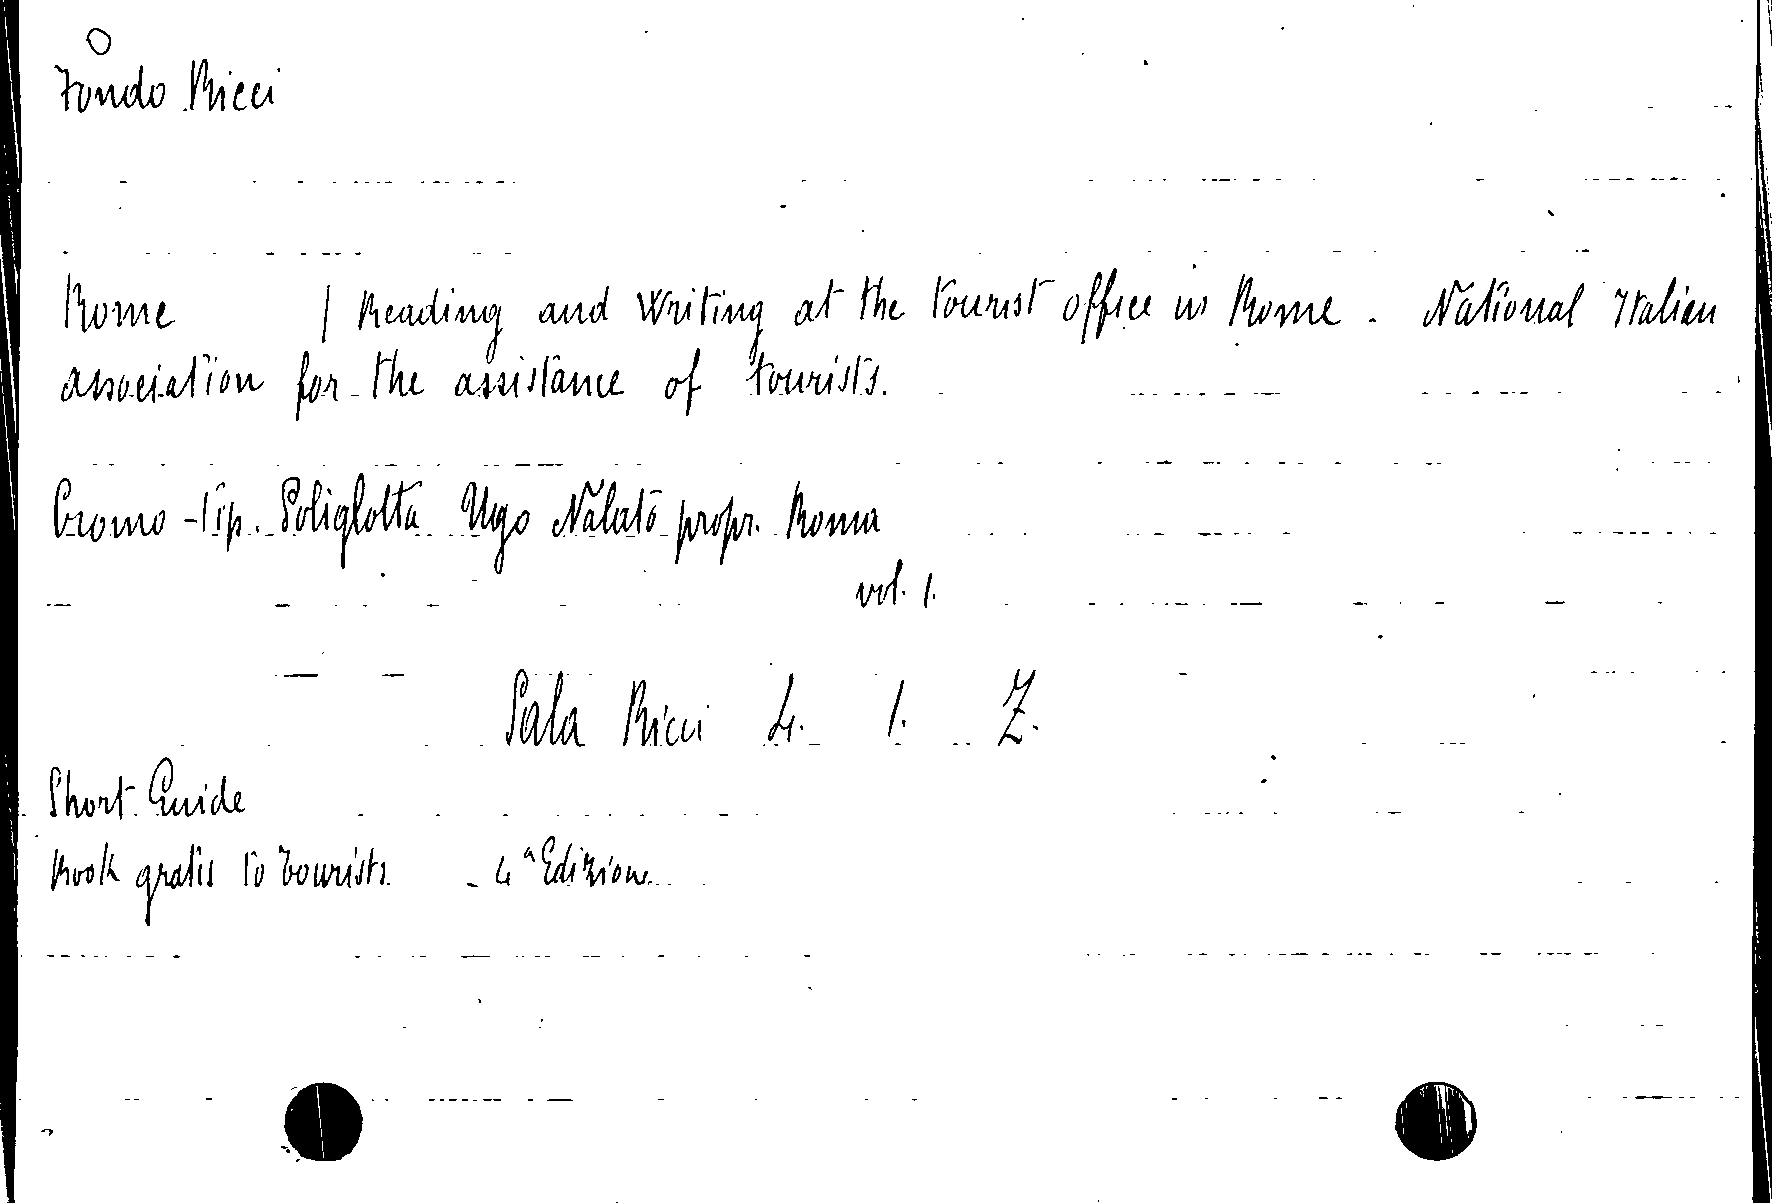 Fondo Ricci
Rome / Reading and Writing at the tourist office in Rome. National Italian
association for the assistance of tourists.
Cromo-Tip. Poliglotta Ugo Nalato propr. Roma
vol. 1.
Sala Ricci 4. 1. Z.
Short Guide
Book gratis to tourists - 4ª Edizione